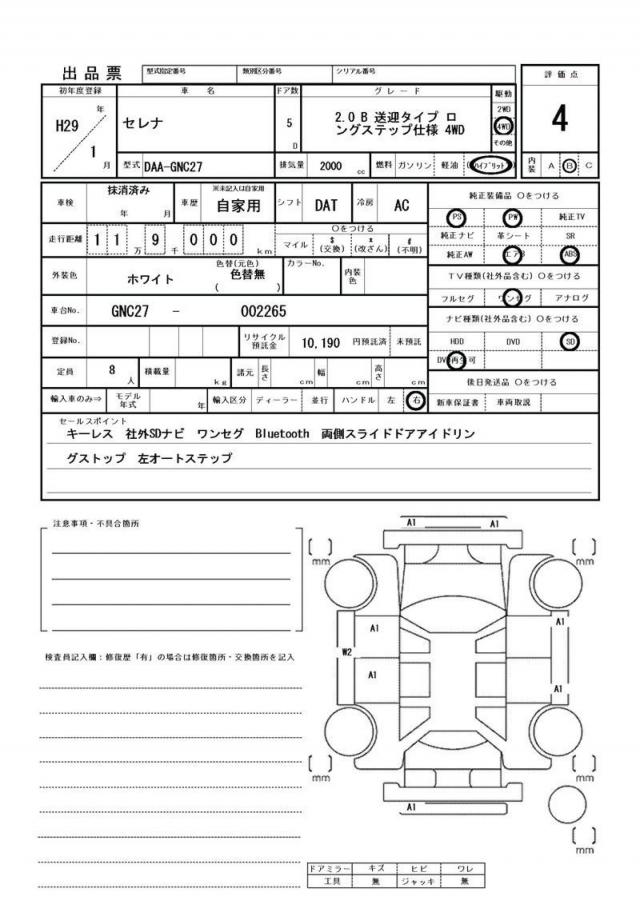 出品票 型式指定番号 類別区分番号 シリアル番号
初年度登録 車名 ドア数 グレード 駆動 評価点
H29 年 セレナ 5 D 2.0 B 送迎タイプ ロ 2WD 4
ングステップ仕様 4WD 4WD
1 月 その他
型式 DAA-GNC27 排気量 2000 cc 燃料 ガソリン 軽油 (ハイブリッド) 内装 A B C
車検 抹消済み 年 月 車歴 ※未記入は自家用 自家用 シフト DAT 冷房 AC 純正装備品 〇をつける
PS PW 純正TV
走行距離 1 1 万 9 千 0 0 0 km 〇をつける マイル $ (交換) * (改ざん) # (不明) 純正ナビ 革シート SR
純正AW エアB ABS
外装色 ホワイト 色替(元色) 色替無 ( ) カラーNo. 内装色 TV種類(社外品含む) 〇をつける
フルセグ ワンセグ アナログ
車台No. GNC27 - 002265 ナビ種類(社外品含む) 〇をつける
登録No. リサイクル預託金 10,190 円預託済 未預託 HDD DVD SD
DVD再生可
定員 8 人 積載量 kg 諸元 長さ cm 幅 cm 高さ cm 後日発送品 〇をつける
輸入車のみ⇒ モデル年式 年 輸入区分 ディーラー 並行 ハンドル 左 右 新車保証書 車両取説
セールスポイント
キーレス 社外SDナビ ワンセグ Bluetooth 両側スライドドアアイドリン
グストップ 左オートステップ
注意事項・不具合箇所
A1 A1
mm mm
A1 A1
W2
A1 A1
検査員記入欄：修復歴「有」の場合は修復箇所・交換箇所を記入
mm mm
A1
mm
ドアミラー キズ ヒビ ワレ
工具 無 ジャッキ 無